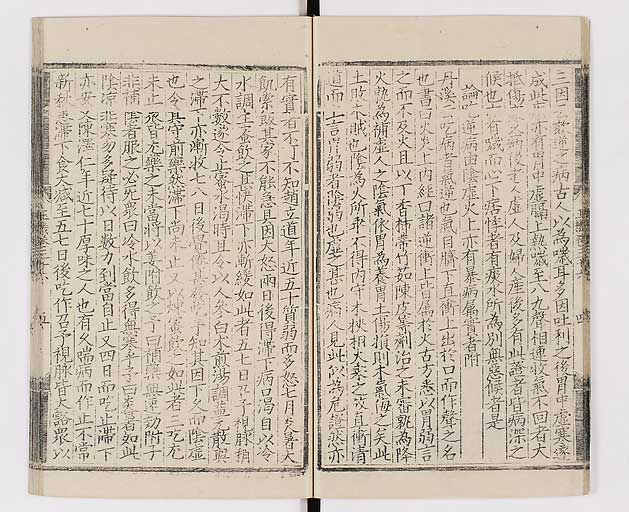 三因 吃逆之病古人以為噦耳多因吐利之後胃中虛寒遂
成此 亦有胃中虛膈上熱噦至八九聲相連收氣不回者大
抵傷 久病後老人虛人及婦人產後多有此證者皆病深之
候也 有噦而心下痞悸者有痰水所為別無惡候者是
論 逆病由陰虛火上亦有暴病偏實者附
丹溪 吃病者氣逆也氣自臍下直衝上出於口而作聲之名
也書曰火炎上內經曰諸逆衝上皆屬於火古方悉以胃弱言
之而不及火且以丁香柿蒂竹茹陳皮等劑治之未審孰為降
火孰為補虛人之陰氣依胃為養胃土傷損則木氣侮之矣此
土敗木賊也陰為火所乘不得內守木挾相火乘之故直衝清
道而上言胃弱者陰弱也虛之甚也病人見此似為危證然亦
有實者不可不知趙立道年近五十質弱而多怒七月炎暑大
飢索飯其家不能急具因大怒兩日後得滯下病口渴自以冷
水調生蜜飲之甚快滯下亦漸緩如此者五七日召予視脈稍
大不數遂令止蜜水渴時且令以人參白朮煎湯調益元散與
之滯下亦漸收七八日後覺倦甚發吃予知其因下久而陰虛
也令其守前藥然滯下尚未止又以煉蜜飲之如此者三日吃尤
未止眾皆尤藥之未當將以姜附飲之予曰補藥無速功附子
非補陰者服之必死眾曰冷水飲多得無寒乎予曰炎暑如此
飲涼非寒勿多疑待以日數力到當自止又四日而吃止滯下
亦安又陳澤仁年近七十厚味之人也有久喘病而作止不常
新秋患滯下食大減至五七日後吃作召予視脈皆大豁眾以